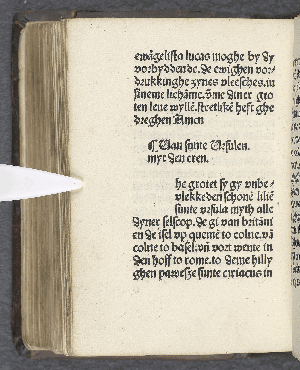 ewāgelista lucas moghe by dy
vorbyddende. de ewighen vor⸗
drukkinghe zynes vleesches. in
sineme lichāme. vme dyner gro
ten leue wyllē. stretlikē heft ghe
dreghen Amen
¶ Uan sunte Ursulen.
myt den eren.
he grotet sy gy vnbe⸗
vlekkeden schonē liliē
sunte vrsula myth alle
dyner selscop. de gi van britani
en de isel vp quemē to colne. vā
colne to basel. vñ vort wente in
den hoff to rome. to deme hilly
ghen pawesze sunte ciriacus in